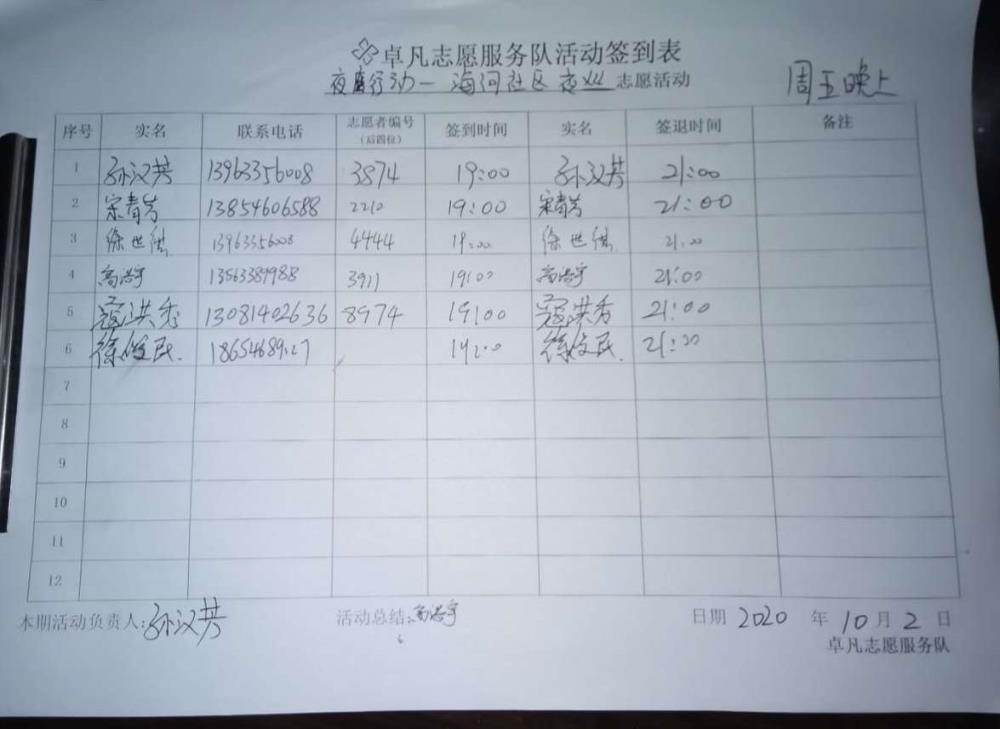 卓凡志愿服务队活动签到表
夜鹰行动一海河社区夜巡志愿活动 周五晚上
序号 实名 联系电话 志愿者编号(后四位) 签到时间 实名 签退时间 备注
1 孙汉芳 13963356008 3874 19:00 孙汉芳 21:00
2 宋青芳 13854606588 2210 19:00 宋青芳 21:00
3 徐世 13963356008 4444 19:00 徐世 21:00
4 高浩宇 13563389988 3911 19:00 高浩宇 21:00
5 寇洪秀 13081402636 8974 19:00 寇洪秀 21:00
6 徐俊民. 19:00 徐俊民. 21:00
7
8
9
10
11
12
本期活动负责人:孙汉芳 活动总结:高浩宇 日期 2020 年 10 月 2 日
卓凡志愿服务队